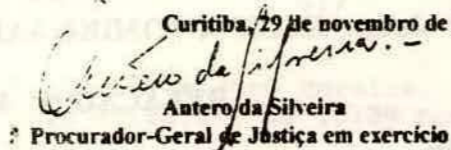 Curitiba, 29 de novembro de
Antero da Silveira.-
Antero da Silveira
Procurador-Geral de Justiça em exercício